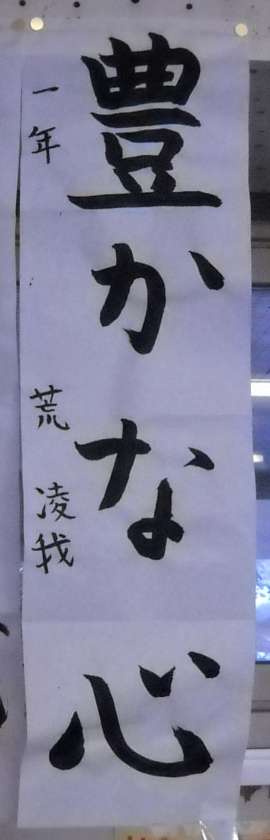 豊かな心
一年 荒 凌我